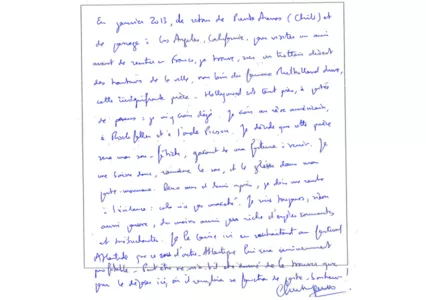 En janvier 2013, de retour de Punta Arenas (Chili) et
de passage à Los Angeles, Californie, pour visiter un ami
avant de rentrer en France, je trouve, sur un trottoir désert
des hauteurs de la ville, non loin du fameux Mulholland drive,
cette insignifiante pièce. Hollywood est tout près, à portée
de : je m'y vois déjà. Je vois un rêve américain,
à Rockfeller et à l'oncle Picsou. Je décide que cette pièce
sera mon sou-fétiche, garant de ma fortune à venir. Je
me baisse donc, ramasse le sou, et le glisse dans mon
porte-monnaie. Deux ans et demi après, je dois me rendre
à l'évidence : cela n'a pas marché. Je vis toujours, sinon
aussi pauvre, du moins aussi peu riche d'espèces sonnantes
et trébuchantes. Je le laisse ici en souhaitant au futur
que ce soit d'outre-Atlantique lui sera
profitable. Peut-être
que je le dépose ici, où il remplira sa fonction de porte-bonheur !